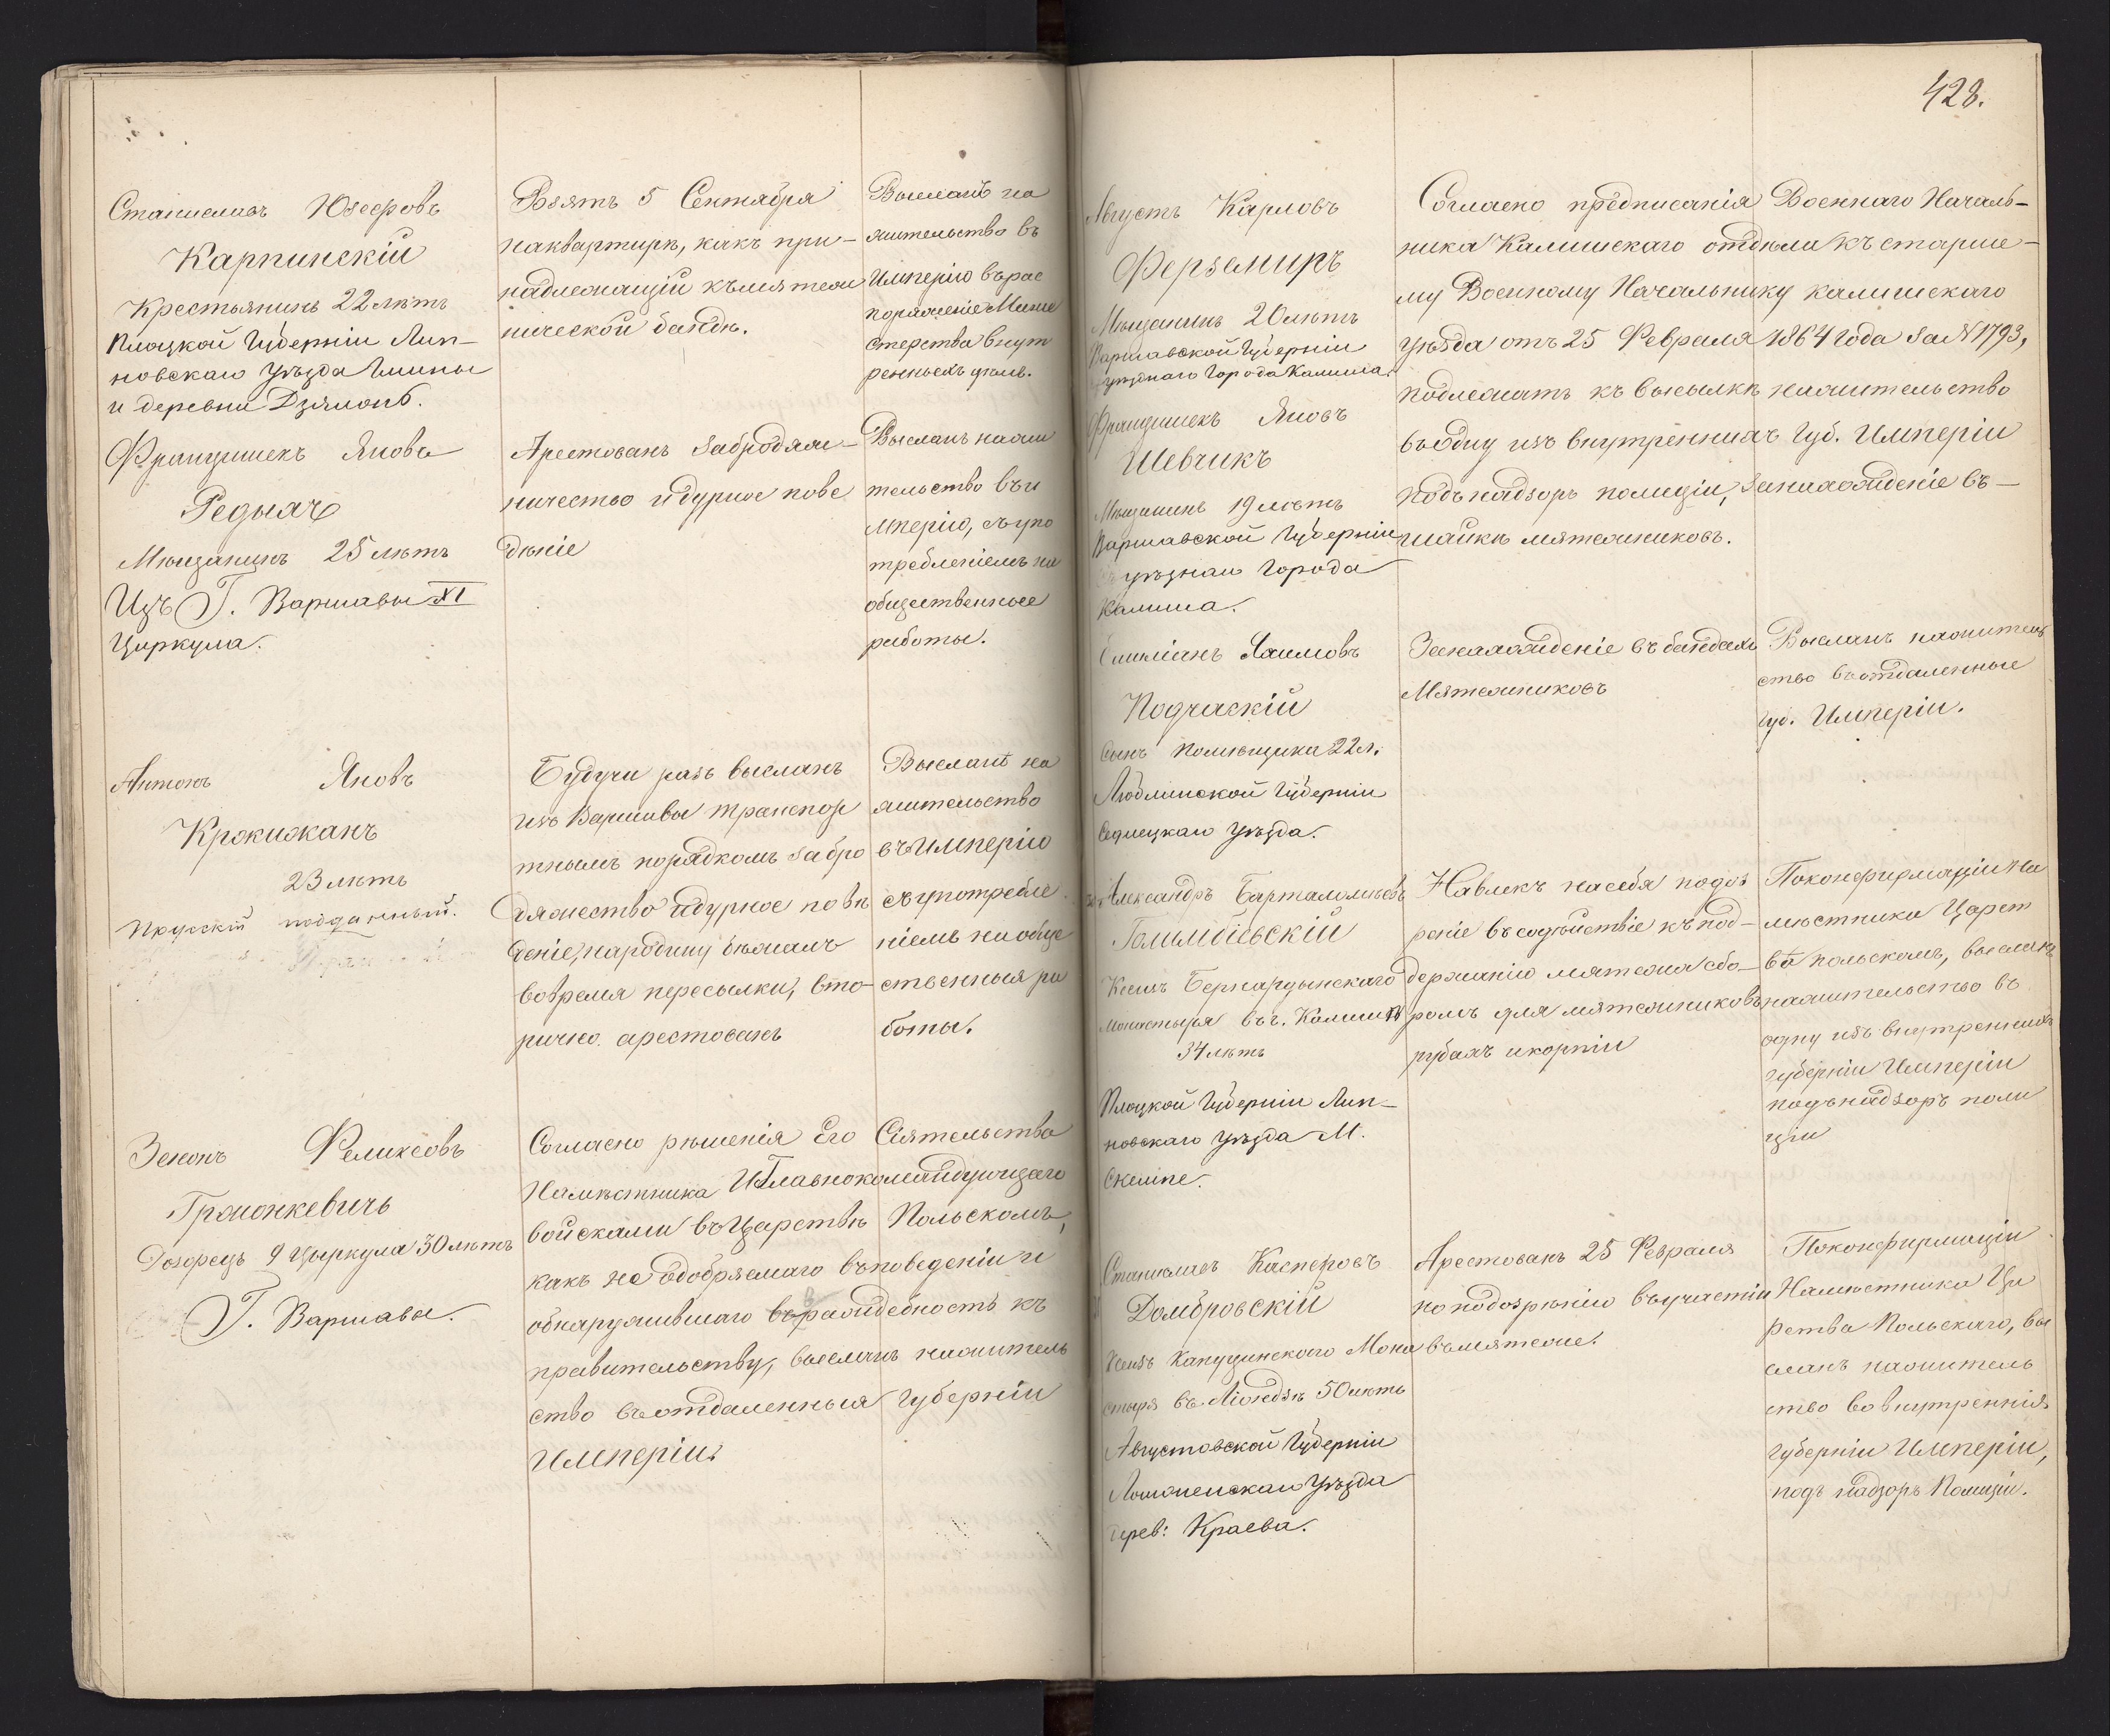 428.
Станиславъ Юзефовъ
Карпинскій
Крестьянинъ 22 лѣтъ
Плоцкой Губерніи Лип-
новскаго Уѣзда Гмины
и деревни
Взятъ 5 Сентября
наквартирѣ, какъ при-
надлежащій къмятеж
нической бандѣ.
Высланъ на
жительство въ
Имперію върас
поряженіе Мини
стерства внут
реннихъ дѣлъ.
Францишекъ Яновъ
Редыхъ
Мѣщанинъ 25 лѣтъ
Изъ Г. Варшавы XI
Циркула.
Арестованъ забродяж-
ничество идурное пове
дѣніе
Высланъ нажи
тельство въи
мперію, съупо
требленіемъ на
общественные
работы.
Антонъ Яновъ
23 лѣтъ
Прусскій подданный.
Будучи разъ высланъ
изъ Варшавы транспор
тнымъ порядкомъ забро
дяжество идурное повѣ
деніе, народину бѣжалъ
вовремя пересылки, вто-
рично арестованъ
Высланъ на
жительство
въИмперію
съупотребле
ніемъ наобще
ственныя ра
боты.
Зенонъ Феликсовъ
Гржонжкевичъ
Дозорецъ 9 Цыркула 30 лѣтъ
Г. Варшавы.
Согласно рѣшенія Его Сіятельства
Намѣстника ИГлавнокомандующаго
войсками въЦарствѣ Польскомъ,
какъ не одобряемаго въповеденіи и
обнаружившаго враждебность къ
правительству, высланъ нажитель
ство въотдаленныя губерніи
Имперіи.
Августъ Карловъ
Ферземиръ
Мѣщанинъ 20 лѣтъ
Варшавской Губерніи
уѣзднаго Города Калиша.
Согласно предписанія Военнаго Началь-
ника Калишскаго отдѣла къ старше-
му Военному Начальнику калишскаго
уѣзда отъ 25 Февраля 1864 года за N 1793,
подлежатъ къ высылкѣ нажительство
въодну изъ внутреннихъ Губ. Имперіи
подънадзоръ полиціи, занахожденіе въ-
шайкѣ мятежниковъ.
Францишекъ Яновъ
Шевчикъ
Мѣщанинъ 19 лѣтъ
Варшавской Губерніи
уѣзднаго Города
Калиша.
Емиліанъ
Подчаскій
Сынъ помѣщика 22 л.
Люблинской Губерніи
Седлецкаго Уѣзда.
Занахожденіе въбандахъ
Мятежниковъ
Высланъ нажитель
ство въотдаленные
Губ. Имперіи.
Александръ Барталомѣевъ
Голембіевскій
Ксензъ Бернардынскаго
монастыря въг. Калишѣ
34 лѣтъ
Плоцкой Губерніи Лип-
новскаго Уѣзда М.
Скемпе.
Навлекъ насебя подоз
реніе въсодѣйствіе къ под-
держанію мятежа сбо-
ромъ для мятежниковъ
рубахъ икорпіи
Поконфирмаціи На
мѣстника Царст
ва польскомъ, высланъ
нажительство въ
одну изъ внутреннихъ
губерніи Имперіи
подънадзоръ поли
ціи
Станиславъ Касперовъ
Домбровскій
Ксензъ Капуцинскаго Мона
стыря въ Ліондзѣ 50 лѣтъ
Августовской Губерніи
Ломженскаго Уѣзда
дерев: Краева.
Арестованъ 25 Февраля
по подозрѣнію въучастіи
въмятеже.
Поконфирмаціи
Намѣстника Ца
рства Польскаго, вы
сланъ нажитель
ство во внутреннія
губерніи Имперіи,
подъ надзоръ Полиціи.